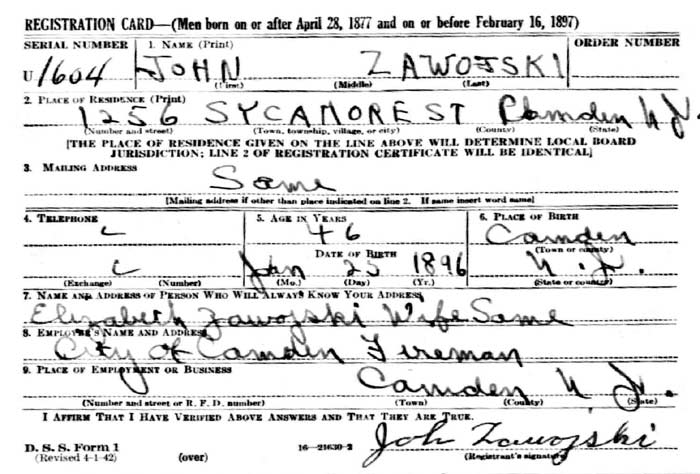 REGISTRATION CARD—(Men born on or after April 28, 1877 and on or before February 16, 1897)
SERIAL NUMBER 1. NAME (Print) ORDER NUMBER
U 1604 JOHN ZAWOJSKI
(First) (Middle) (Last)
2. PLACE OF RESIDENCE (Print)
1256 SYCAMORE ST Camden N. J.
(Number and street) (Town, township, village, or city) (County) (State)
[THE PLACE OF RESIDENCE GIVEN ON THE LINE ABOVE WILL DETERMINE LOCAL BOARD
JURISDICTION; LINE 2 OF REGISTRATION CERTIFICATE WILL BE IDENTICAL]
3. MAILING ADDRESS
Same
[Mailing address if other than place indicated on line 2. If same insert word same]
4. TELEPHONE 5. AGE IN YEARS 6. PLACE OF BIRTH
46 Camden
DATE OF BIRTH (Town or county)
Jan 25 1896 N. J.
(Exchange) (Number) (Mo.) (Day) (Yr.) (State or country)
7. NAME AND ADDRESS OF PERSON WHO WILL ALWAYS KNOW YOUR ADDRESS
Elizabeth Zawojski Wife Same
8. EMPLOYER'S NAME AND ADDRESS
City of Camden Fireman
9. PLACE OF EMPLOYMENT OR BUSINESS
Camden N. J.
(Number and street or R. F. D. number) (Town) (County) (State)
I AFFIRM THAT I HAVE VERIFIED ABOVE ANSWERS AND THAT THEY ARE TRUE.
D. S. S. Form 1 16—21630-2 John Zawojski
(Revised 4-1-42) (over) (Registrant's signature)